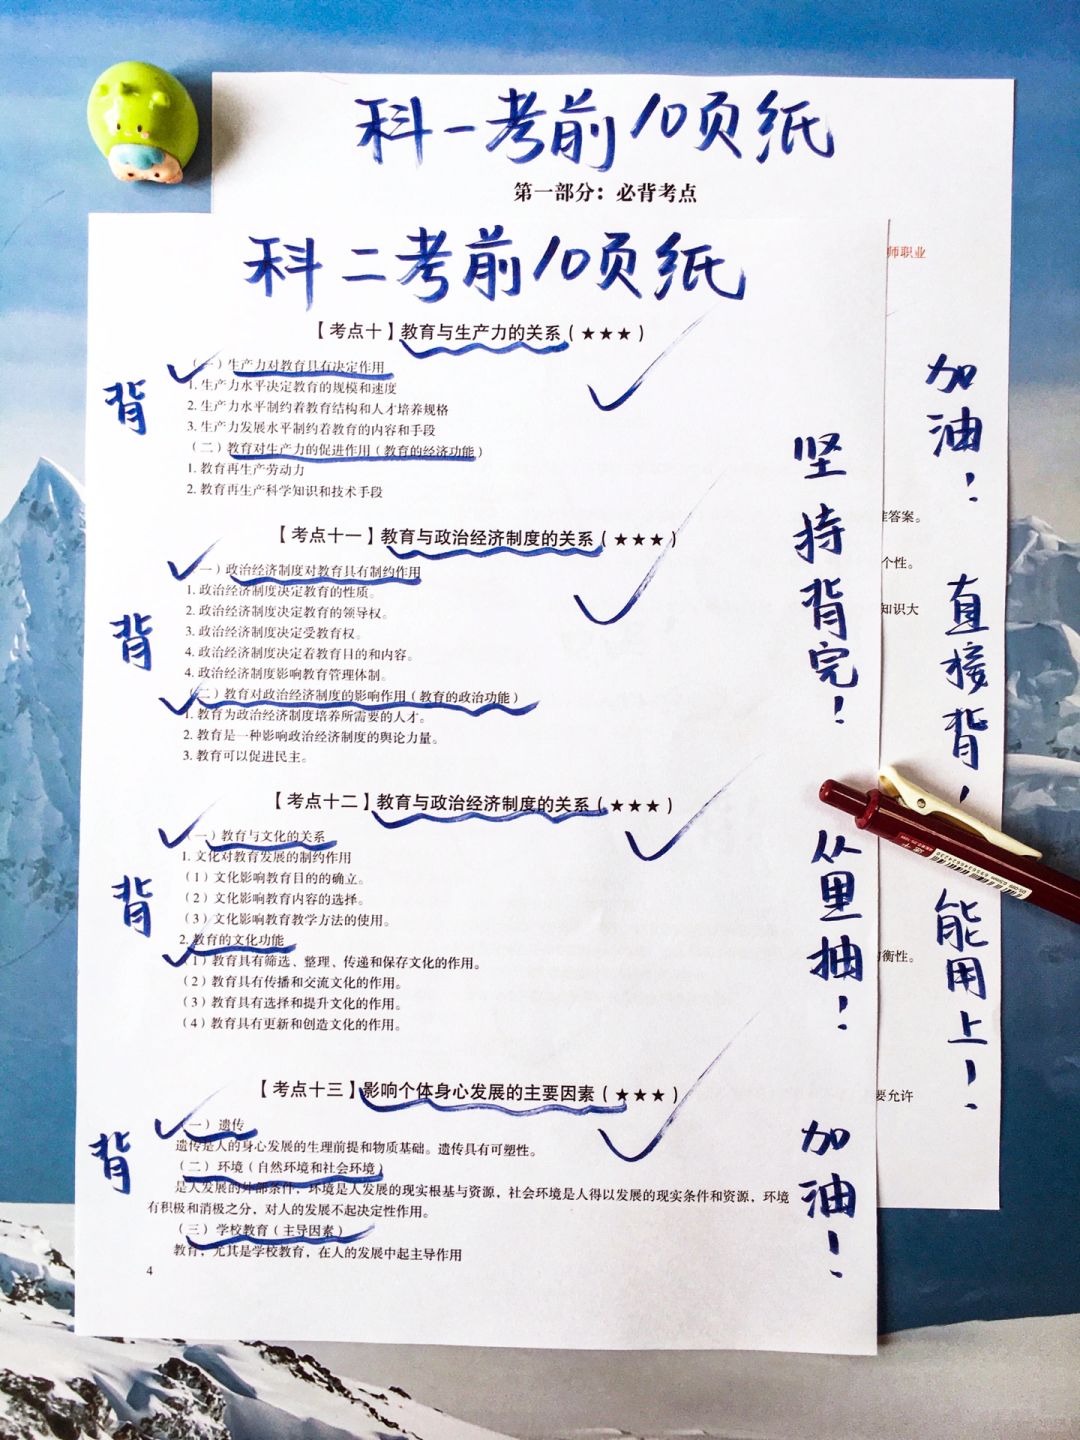 科一考前10页纸
第一部分：必背考点
师职业
准答案。
个性。
知识大
衡性。
要允许
加油！
直接背！
能用上！
科二考前10页纸
【考点十】教育与生产力的关系（★★★）
（一）生产力对教育具有决定作用
1. 生产力水平决定教育的规模和速度
2. 生产力水平制约着教育结构和人才培养规格
3. 生产力发展水平制约着教育的内容和手段
（二）教育对生产力的促进作用（教育的经济功能）
1. 教育再生产劳动力
2. 教育再生产科学知识和技术手段
背
【考点十一】教育与政治经济制度的关系（★★★）
（一）政治经济制度对教育具有制约作用
1. 政治经济制度决定教育的性质。
2. 政治经济制度决定教育的领导权。
3. 政治经济制度决定受教育权。
4. 政治经济制度决定着教育目的和内容。
4. 政治经济制度影响教育管理体制。
（二）教育对政治经济制度的影响作用（教育的政治功能）
1. 教育为政治经济制度培养所需要的人才。
2. 教育是一种影响政治经济制度的舆论力量。
3. 教育可以促进民主。
背
【考点十二】教育与政治经济制度的关系（★★★）
（一）教育与文化的关系
1. 文化对教育发展的制约作用
（1）文化影响教育目的的确立。
（2）文化影响教育内容的选择。
（3）文化影响教育教学方法的使用。
2. 教育的文化功能
（1）教育具有筛选、整理、传递和保存文化的作用。
（2）教育具有传播和交流文化的作用。
（3）教育具有选择和提升文化的作用。
（4）教育具有更新和创造文化的作用。
背
【考点十三】影响个体身心发展的主要因素（★★★）
（一）遗传
遗传是人的身心发展的生理前提和物质基础。遗传具有可塑性。
（二）环境（自然环境和社会环境）
是人发展的外部条件，环境是人发展的现实根基与资源，社会环境是人得以发展的现实条件和资源，环境
有积极和消极之分，对人的发展不起决定性作用。
（三）学校教育（主导因素）
教育，尤其是学校教育，在人的发展中起主导作用
背
4
坚持背完！
从里抽！
加油！